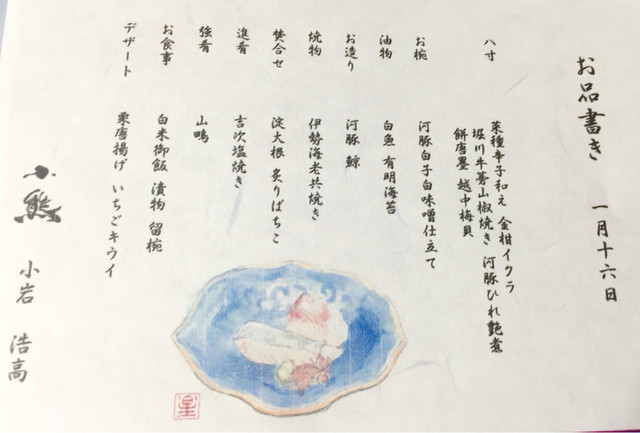 お品書き 一月十六日
八寸 菜種辛子和え 金柑イクラ
堀川牛蒡山椒焼き 河豚ひれ艶煮
餅唐墨 越中梅貝
お椀 河豚白子白味噌仕立て
油物 白魚 有明海苔
お造り 河豚 鯨
焼物 伊勢海老共焼き
焚合せ 淀大根 炙りばちこ
進肴 吉次塩焼き
強肴 山鴫
お食事 白米御飯 漬物 留椀
デザート 栗唐揚げ いちごキウイ
小熊 小岩 浩高